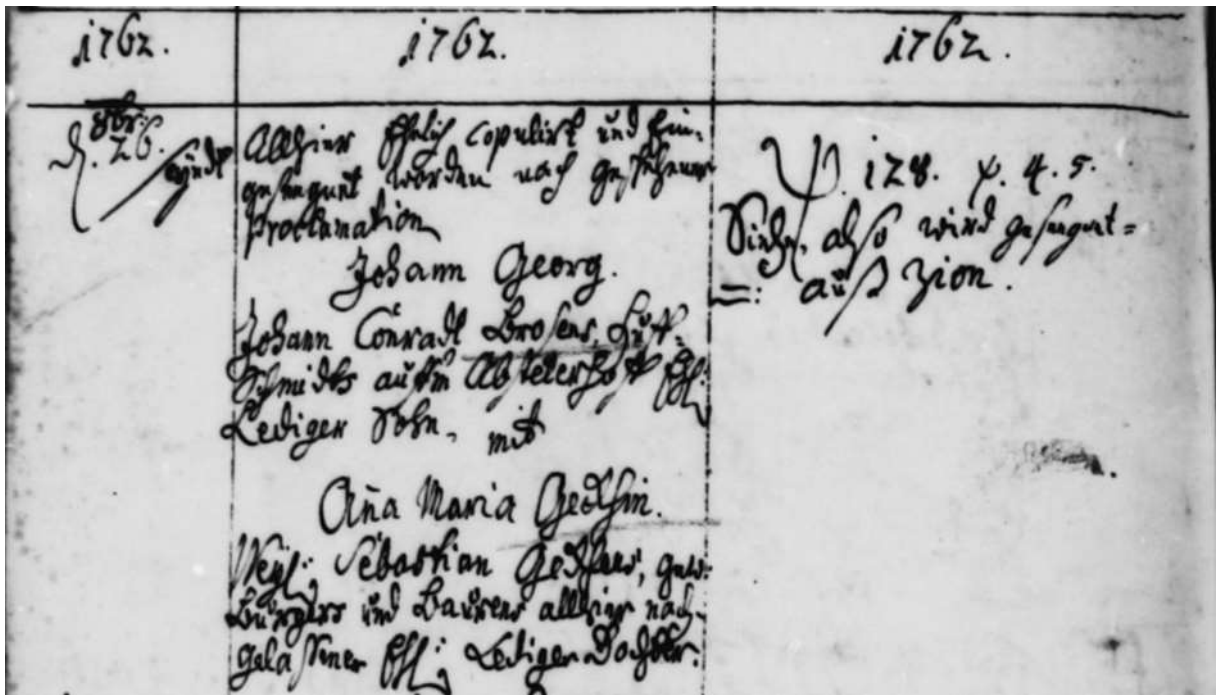 1762. 1762. 1762.
8br:
d. 26.
Allhier Ehelich copulirt und Ein-
gesegnet worden nach geschehener
Proclamation
Johann Georg.
Johann Conradt Brosens, Huf-
Schmidts aufm Absteterhoff Ehl:
Lediger Sohn, mit
Aña Maria
Weyl: Sebastian gew:
Burgers und Baurens allhier nach-
gelaßener Ehl: Ledigen Dochter.
Ψ. 128. v. 4. 5.
Siehe, also wird gesegnet =
=: auß Zion.